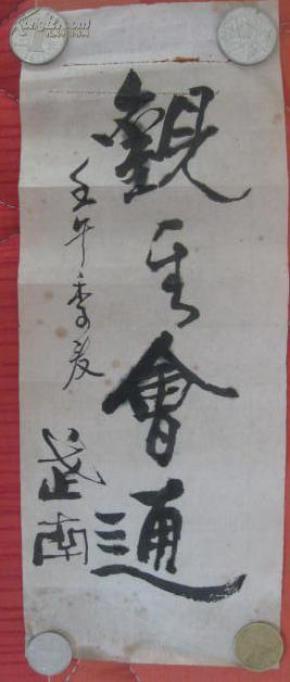 觀其會通
壬午季夏
武南